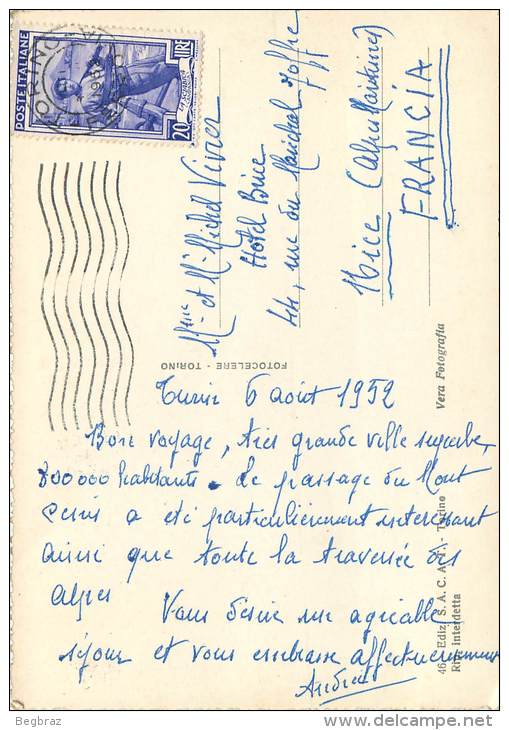 POSTE ITALIANE
20 LIRE
TORINO
Mme et M. Michel Vivier
Hotel Brice
44, rue du Maréchal Joffre
Nice (Alpes Maritimes)
FRANCIA
FOTOCELERE - TORINO
Vera Fotografia
Ediz. S. A. C. A. T. - Torino
Ripr. interdetta
Turin 6 août 1952
Bon voyage, très grande ville superbe,
800 000 habitants. Le passage du Mont
Cenis a été particulièrement intéressant
ainsi que toute la traversée des
Alpes
Vous désire un agréable
séjour et vous embrasse affectueusement
Begbraz
delcampe.net